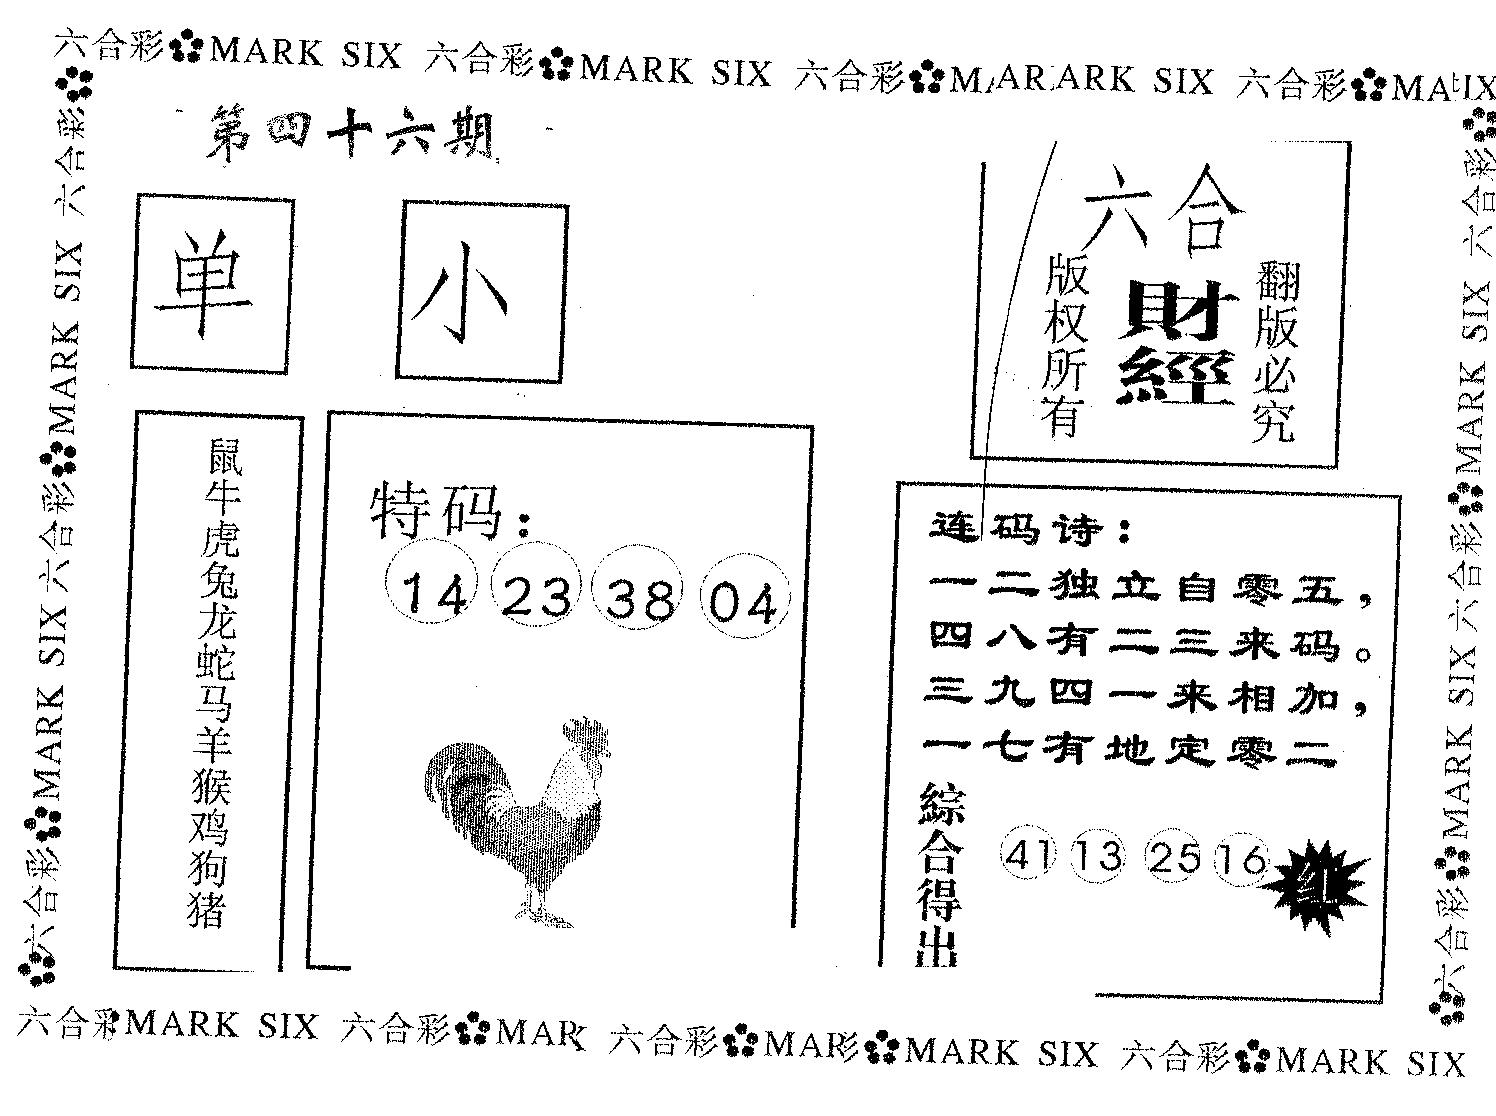 六合彩 MARK SIX 六合彩 MARK SIX 六合彩 MARARK SIX 六合彩 MAIX
六合彩 MARK SIX 六合彩 MARK SIX 六合彩 MARK SIX 六合彩
第四十六期
单
小
六合
財經
版权所有
翻版必究
鼠牛虎兔龙蛇马羊猴鸡狗猪
特码：
14 23 38 04
连码诗：
一二独立自零五，
四八有二三来码。
三九四一来相加，
一七有地定零二
綜合得出
41 13 25 16
红
六合彩 MARK SIX 六合彩 MARK SIX 六合彩 MARK SIX 六合彩
六合彩 MARK SIX 六合彩 MAR 六合彩 MAR彩 MARK SIX 六合彩 MARK SIX